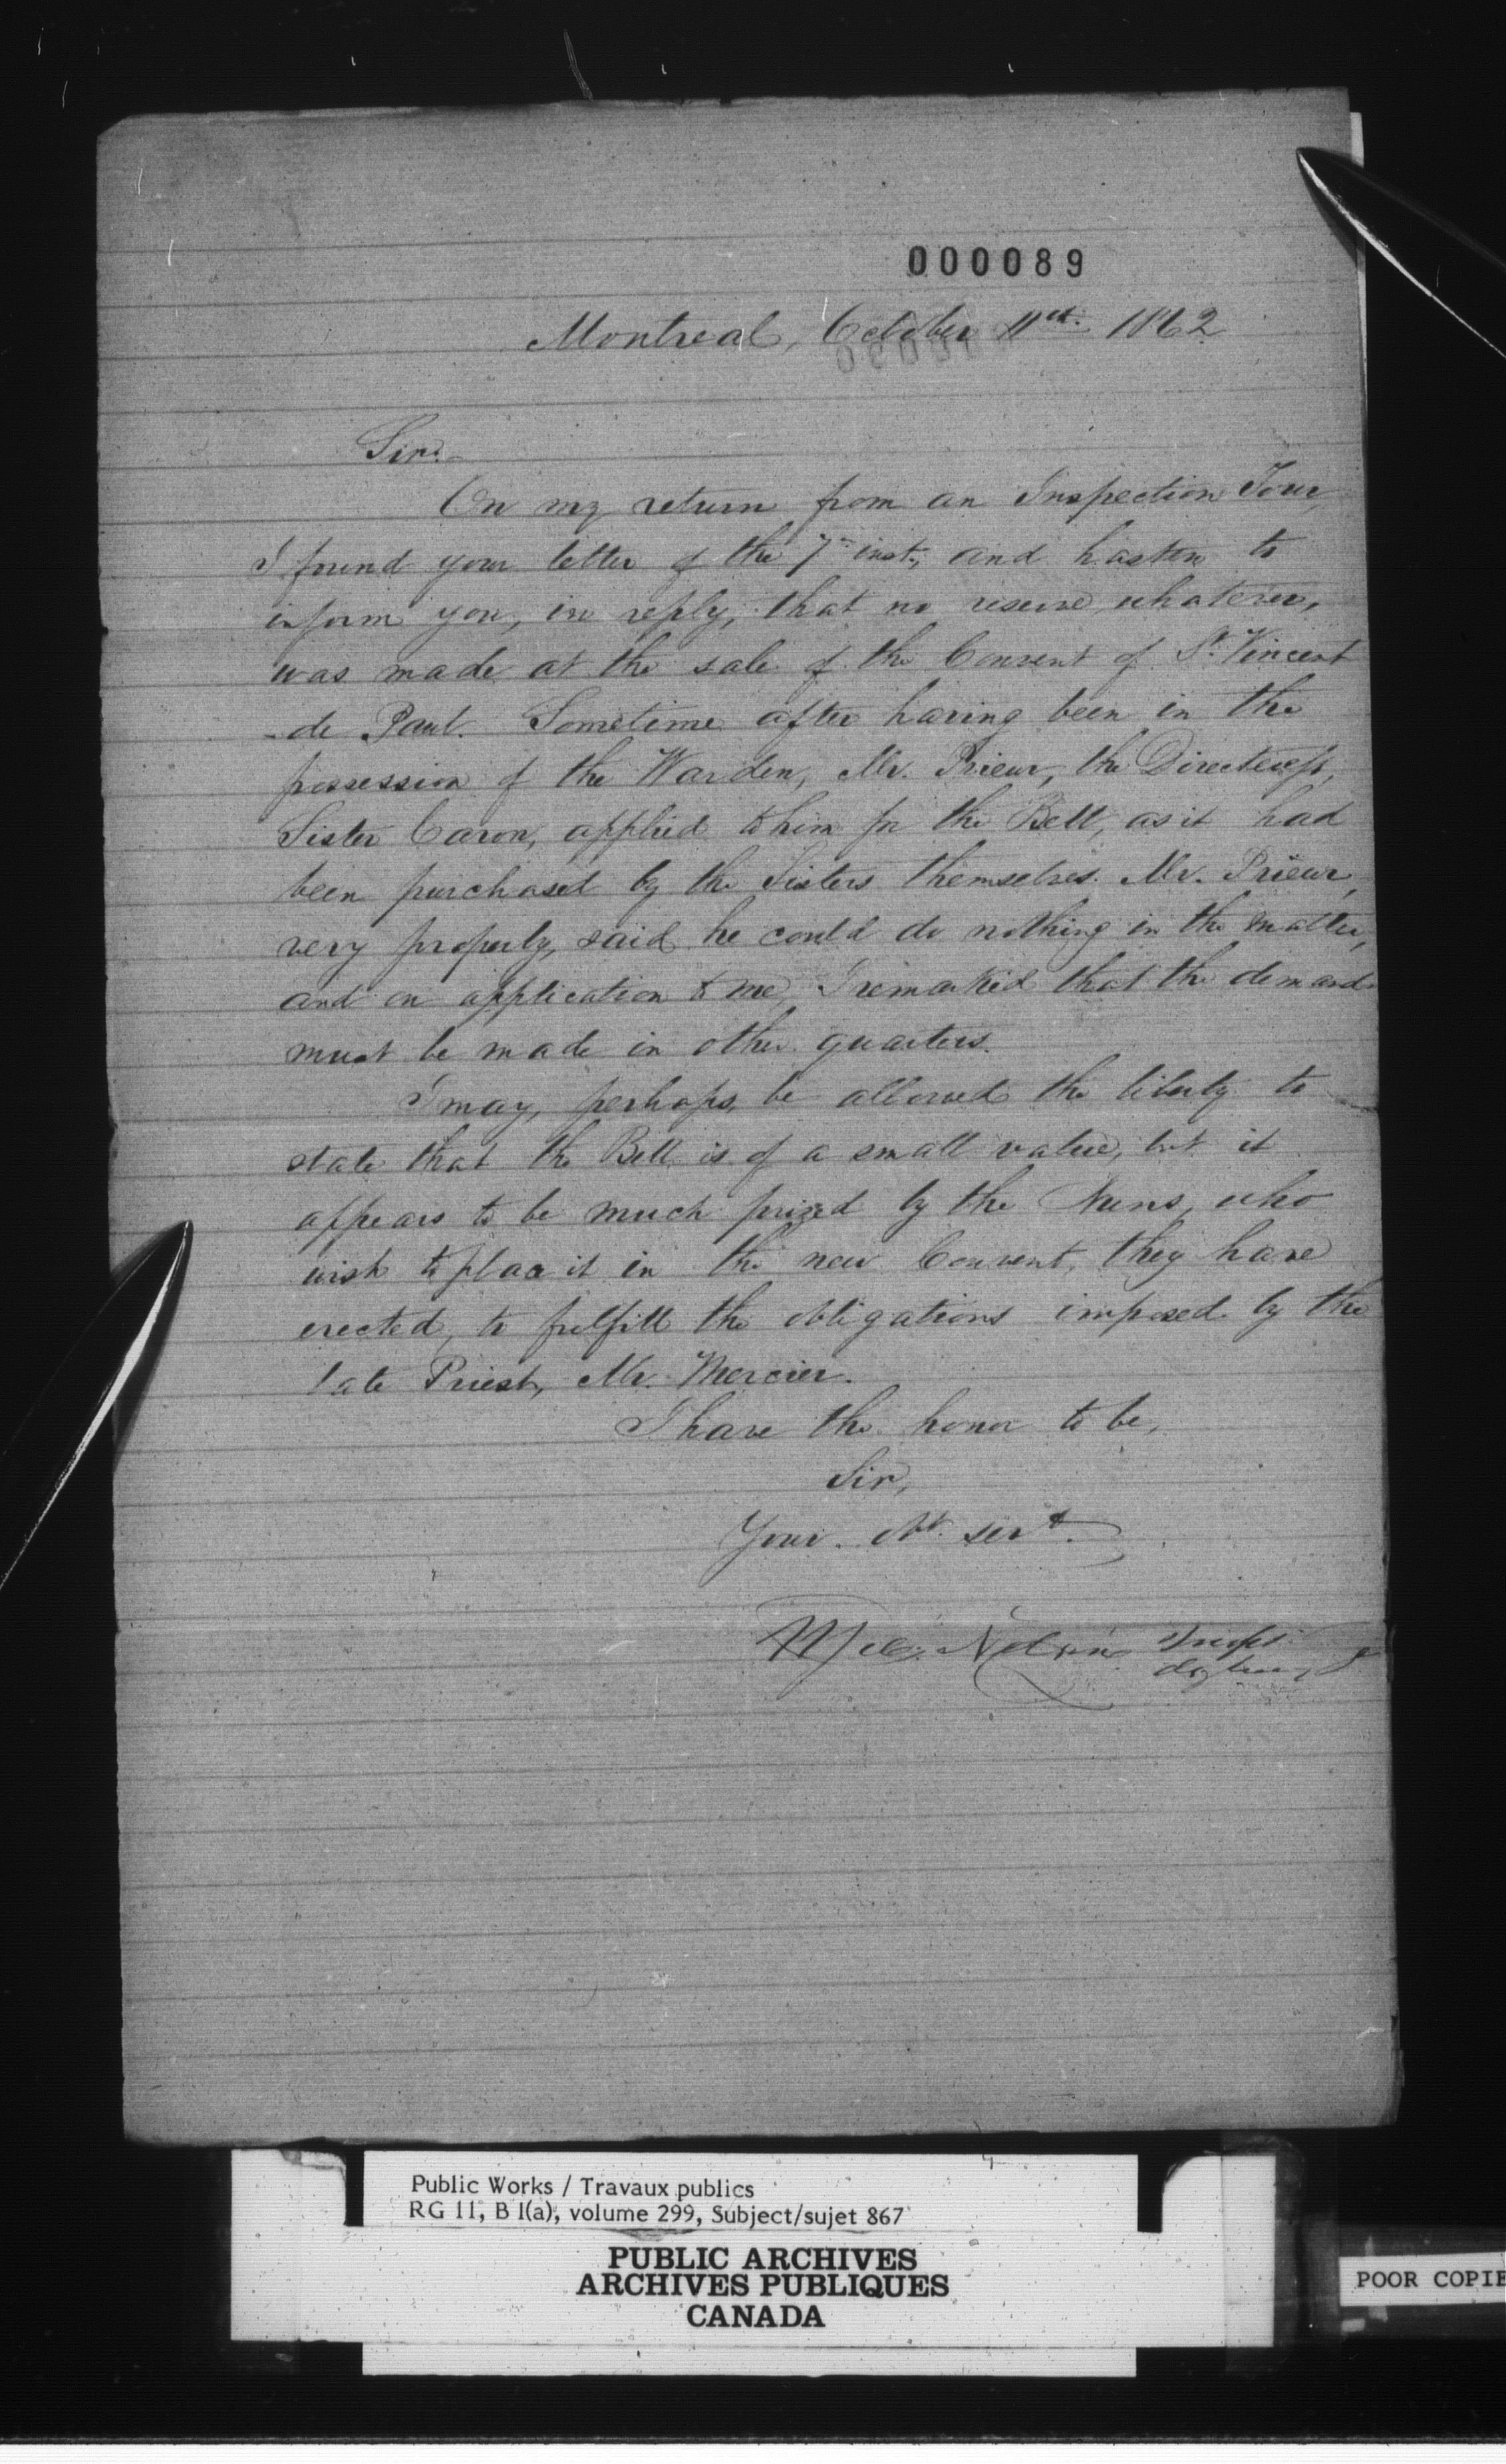 000089
Montreal, October 11th. 1862
Sir.-
On my return from an Inspection Tour,
I found your letter of the 7th inst., and hasten to
inform you, in reply, that no reserve whatever,
was made at the sale of the Convent of St. Vincent
- de Paul. Sometime after having been in the
possession of the Warden, Mr. Prieur, the Directress,
Sister Caron, applied to him for the Bell, as it had
been purchased by the Sisters themselves. Mr. Prieur,
very properly, said he could do nothing in the matter,
and on application to me, I remarked that the demand
must be made in other quarters.
I may, perhaps, be allowed the liberty to
state that the Bell is of a small value, but it
appears to be much prized by the Nuns, who
wish to place it in the new Convent, they have
erected, to fulfill the obligations imposed by the
late Priest, Mr. Mercier.
I have the honor to be,
Sir,
Your. obt. servt.
Nelson
Public Works / Travaux publics
RG 11, B 1(a), volume 299, Subject/sujet 867
PUBLIC ARCHIVES
ARCHIVES PUBLIQUES
CANADA
POOR COPIE